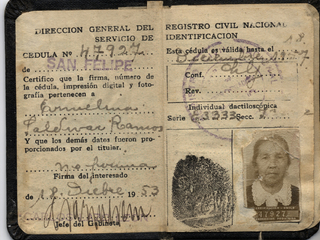 DIRECCION GENERAL DEL
SERVICIO DE
CEDULA Nº 47927
SAN FELIPE
Certifico que la firma, número de
la cédula, impresión digital y foto-
grafía pertenecen a
Ramos
Y que los demás datos fueron pro-
porcionados por el titular.
no firma
Firma del interesado
de 18 Dicbre 1953
Jefe del Gabinete
REGISTRO CIVIL NACIONAL
IDENTIFICACION
Esta cédula es válida hasta el 18
Diciembre
Conf.
Rev.
Individual dactiloscópica
Serie 3333 Secc.
47927